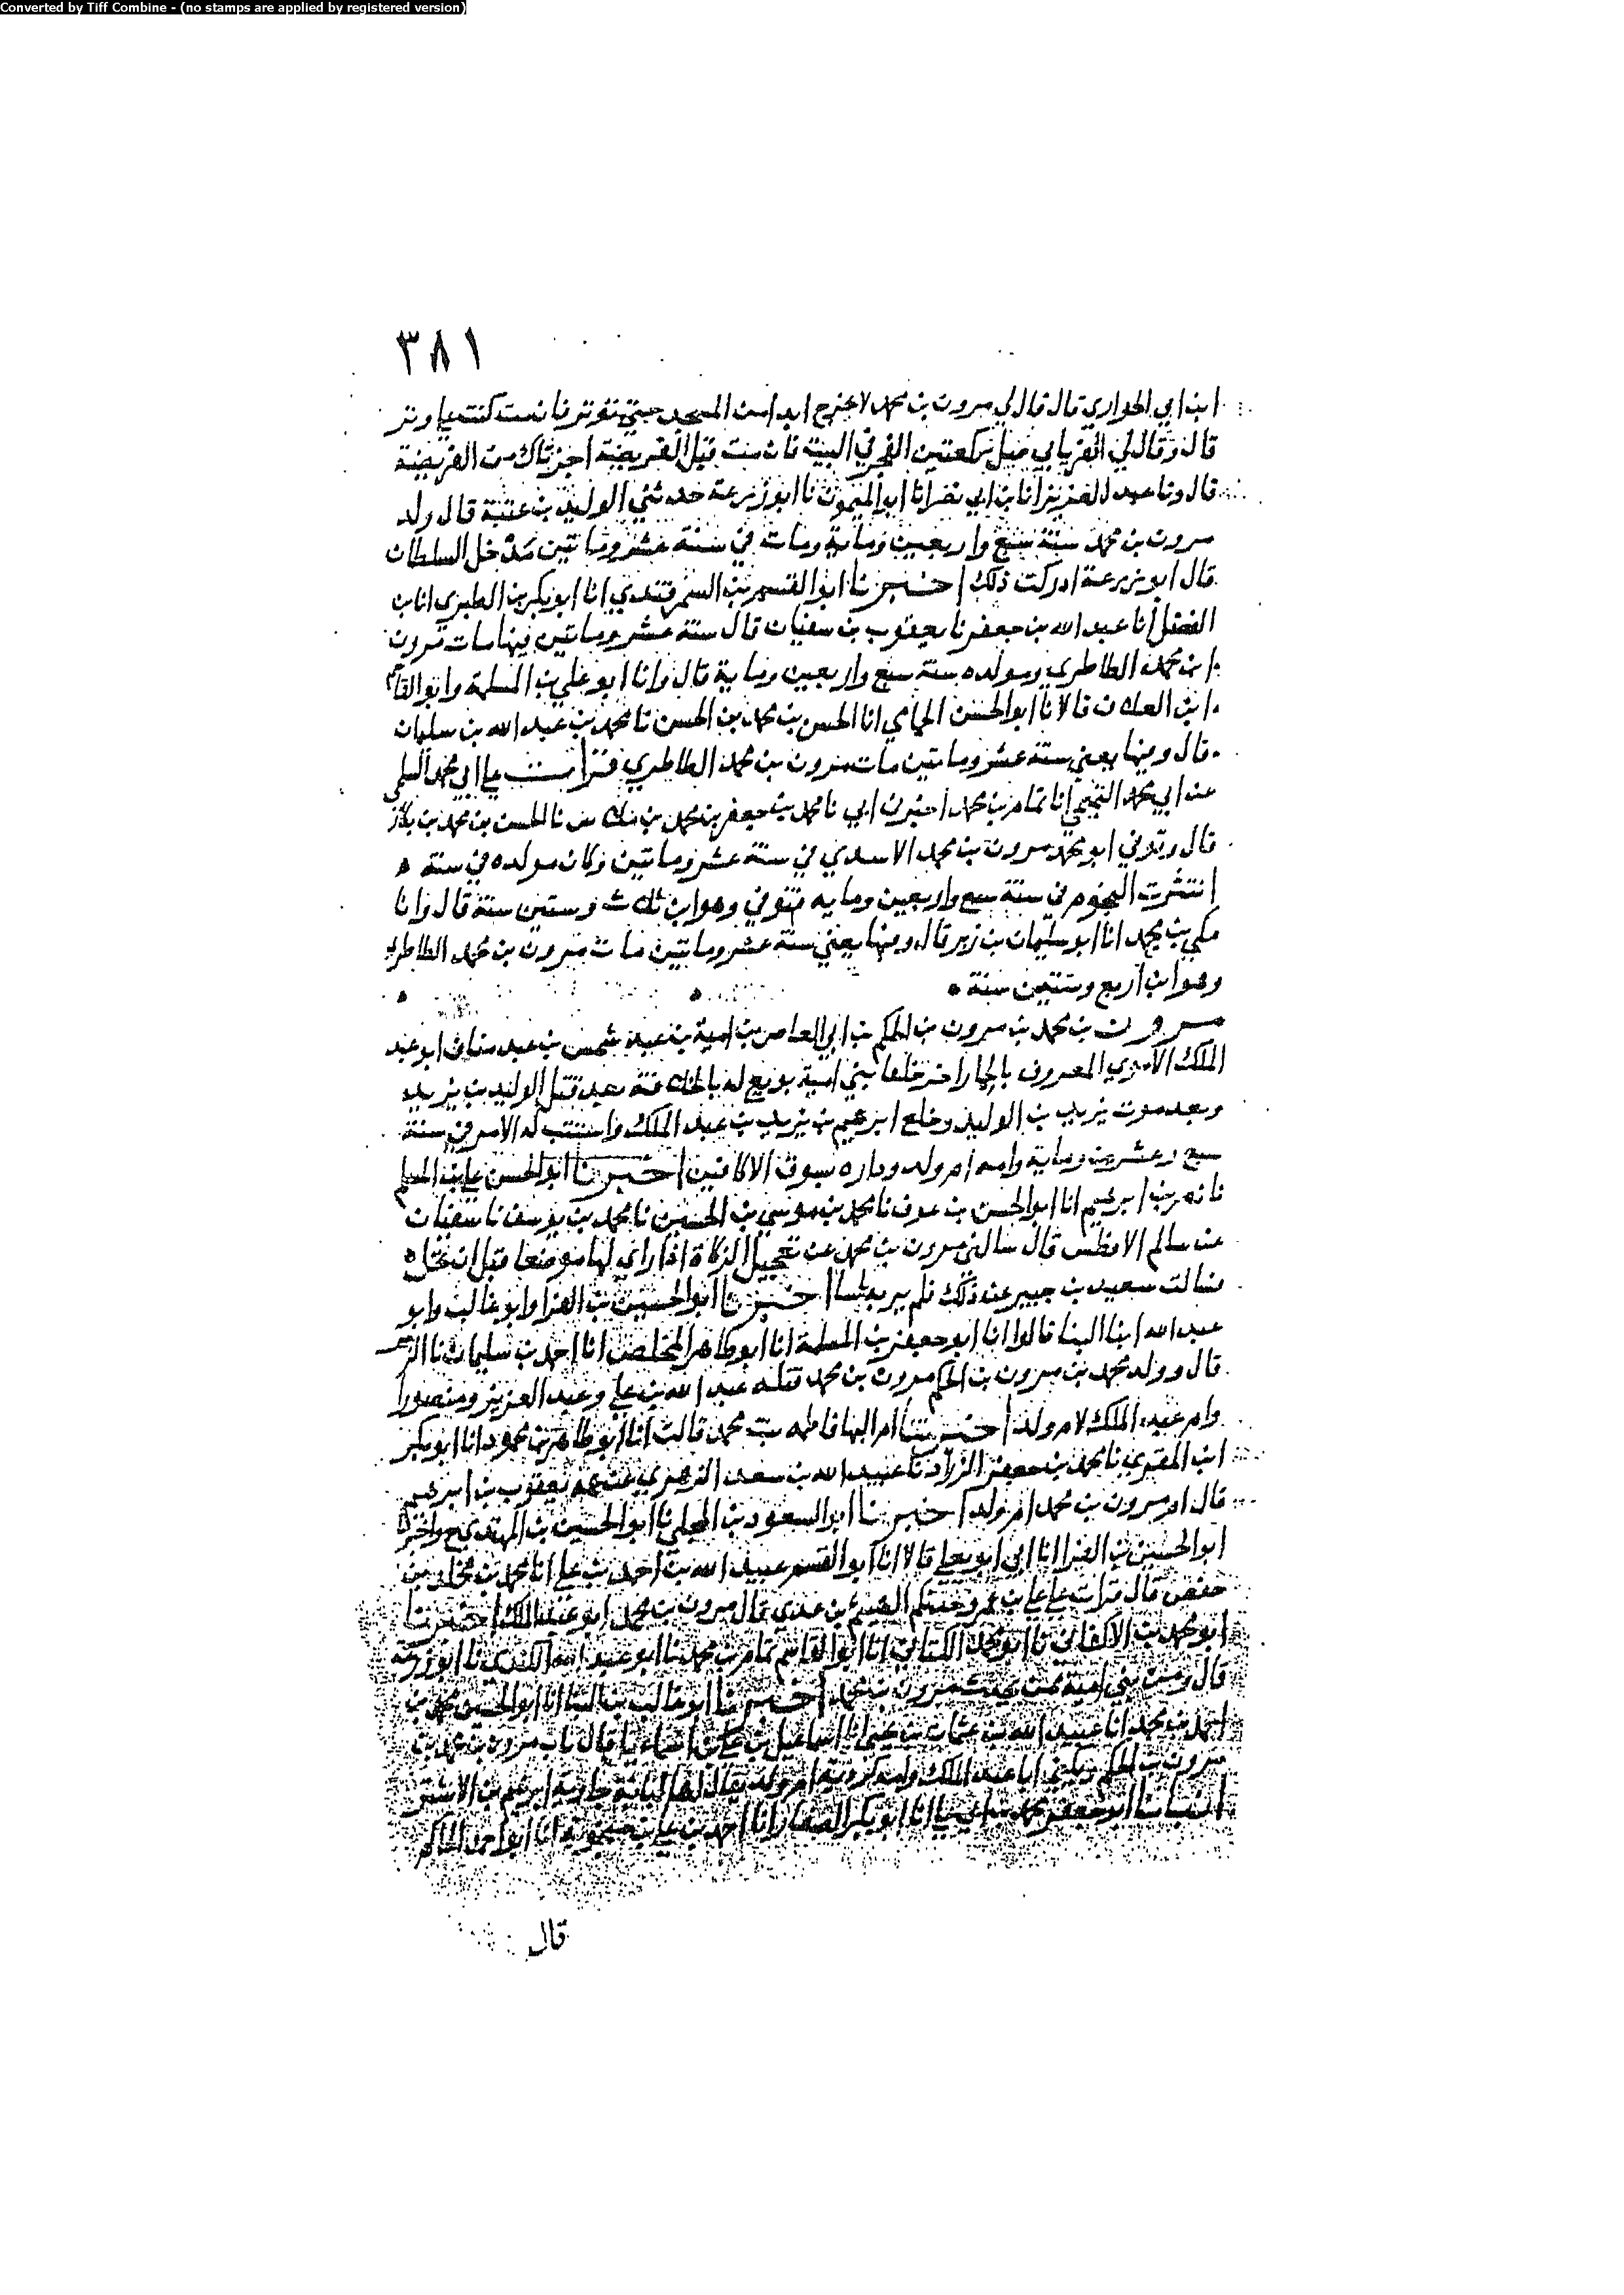 Converted by Tiff Combine - (no stamps are applied by registered version)
٣٨١
ابن ابي الحواري قال قال لي مرون بن محمد لا تخرج ابدا من المسجد حتى توتر فان مت كنت على وتر
قال وقال لي الفريابي صل ركعتين الفجر في البيت فان مت قبل الفريضة اجزتاك من الفريضة
قال ونا عبد العزيز انا بن ابي نصر انا ابو الميمون نا ابو زرعة حدثني الوليد بن عتبة قال ولد
مرون بن محمد سنة سبع واربعين وماية ومات في سنة عشر وماتين مدخل السلطان
قال ابو زرعة ادركت ذلك اخبرنا ابو القسم بن السمرقندي انا ابو بكر بن الطبري انا بن
الفضل انا عبد الله بن جعفر نا يعقوب بن سفيان قال سنة عشر وماتين فيها مات مرون
ابن محمد الطاطري ومولده سنة سبع واربعين وماية قال وانا ابو علي بن المسلمة وابو القاسم
ابن العلاف قالا نا ابو الحسن الحمامي انا الحسن بن محمد بن الحسن نا محمد بن عبد الله بن سليمان
قال وفيها يعني سنة عشر وماتين مات مرون بن محمد الطاطري قرات على ابي محمد السلمي
عن ابي محمد التميمي انا تمام بن محمد اخبرني ابي نا محمد بن جعفر بن محمد بن ملاس نا الحسن بن محمد بن بكار
قال وتوفي ابو محمد مرون بن محمد الاسدي في سنة عشر وماتين وكان مولده في سنة
انتثرت النجوم في سنة سبع واربعين ومايه فتوفي وهو ابن ثلاث وستين سنة قال وانا
مكي بن محمد انا ابو سليمان بن زبر قال وفيها يعني سنة عشر وماتين مات مرون بن محمد الطاطري
وهو ابن اربع وستين سنة
مرون بن محمد بن مرون بن الحكم بن ابي العاص بن امية بن عبد شمس بن عبد مناف ابو عبد
الملك الاموي المعروف بالحمار اخر خلفا بني امية بويع له بالخلافة بعد قتل الوليد بن يزيد
وبعد موت يزيد بن الوليد وخلع ابرهيم بن يزيد بن عبد الملك واستتب له الامر في سنة
سبع وعشرين وماية وامه ام ولد وداره بسوق الاكافين اخبرنا ابو الحسن علي بن المسلم
نا نصر بن ابرهيم انا ابو الحسن بن عوف نا محمد بن موسى بن الحسين نا محمد بن يوسف نا سفيان
عن سالم الافطس قال سالني مرون بن محمد عن تعجيل الزكاة اذا راي لها موضعا قبل ان تحل
فسالت سعيد بن جبير عن ذلك فلم ير به باسا اخبرنا ابو الحسين بن الفرا وابو غالب وابو
عبد الله ابنا البنا قالوا انا ابو جعفر بن المسلمة انا ابو طاهر المخلص انا احمد بن سليمان نا الزبير
قال وولد محمد بن مرون بن الحكم مرون بن محمد قتله عبد الله بن علي وعبد العزيز ومنصورا
وام عبد الملك لام ولد اخبرتنا ام البها فاطمه بنت محمد قالت انا ابو طاهر بن محمود انا ابو بكر
ابن المقري نا محمد بن جعفر الزراد نا عبيد الله بن سعد الزهري عن عمه يعقوب بن ابرهيم
قال ام مرون بن محمد ام ولد اخبرنا ابو السعود بن المجلي نا ابو الحسين بن المهتدي ح واخبرنا
ابو الحسين بن الفرا انا ابي ابو يعلى قالا انا ابو القسم عبيد الله بن احمد بن علي انا محمد بن مخلد بن
حفص قال قرات على علي بن عمرو حدثكم الهيثم بن عدي قال مرون بن محمد ابو عبد الملك اخبرنا
ابو محمد بن الاكفاني نا ابو محمد الكتاني انا ابو القاسم تمام بن محمد نا ابو عبد الله الكندي نا ابو زرعة
قال ومن بني امية ممن يحدث مرون بن محمد اخبرنا ابو غالب بن البنا انا ابو الحسين محمد بن
احمد بن محمد انا عبيد الله بن عثمان بن يحيى انا اسماعيل بن علي قال مرون بن محمد بن
مرون بن الحكم ويكنى ابا عبد الملك وامه كردية ام ولد يقال لها لبابة جارية ابرهيم بن الاشتر
انبانا ابو جعفر محمد بن ابي علي انا ابو بكر الصفار انا احمد بن علي بن منجويه انا ابو احمد الحاكم
قال